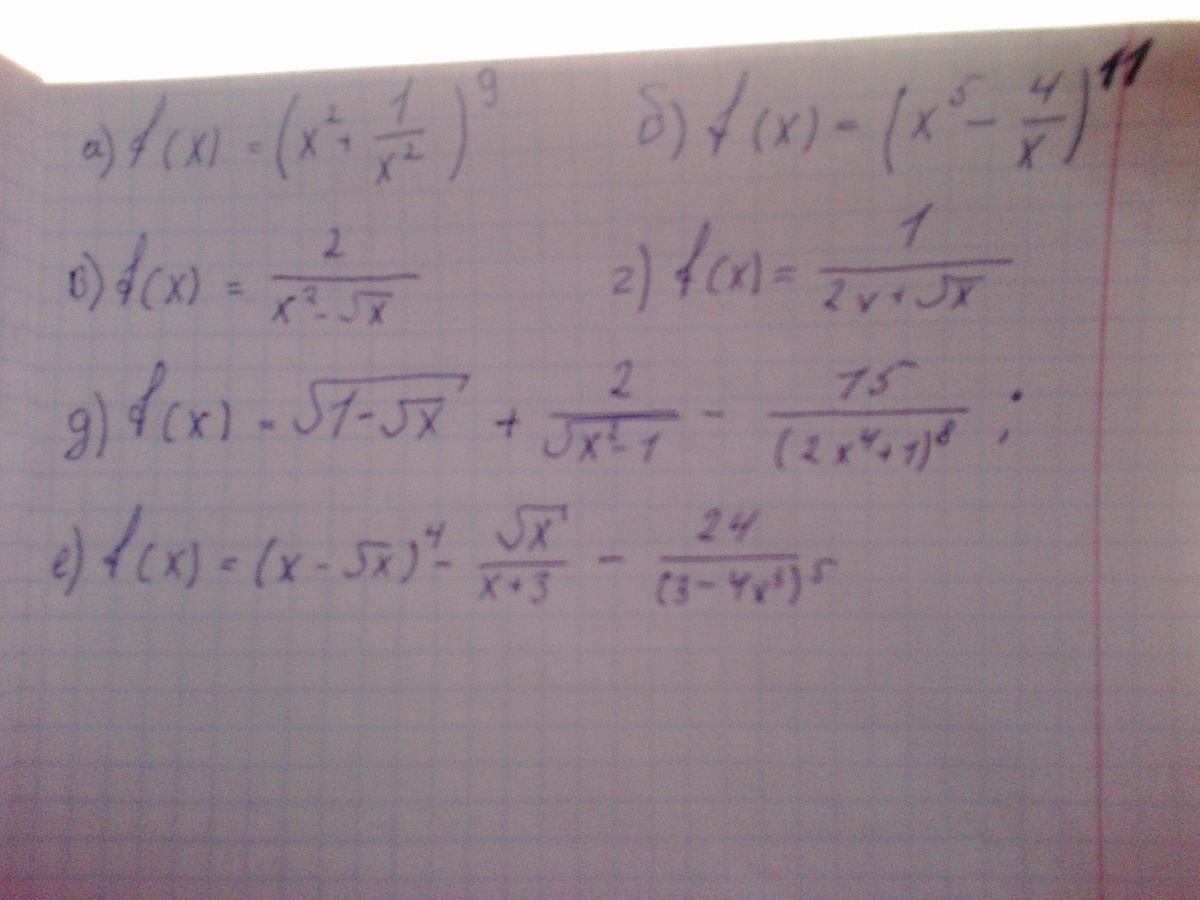 а) f(x) = (x² + 1/x²)⁹ б) f(x) = (x⁵ - 4/x)¹¹
в) f(x) = 2/(x² - √x) г) f(x) = 1/(2x + √x)
д) f(x) = √(1 - √x) + 2/√(x² - 1) - 15/(2x⁴ + 1)⁸ ;
е) f(x) = (x - √x)⁴ - √x/(x + 3) - 24/(3 - 4x³)⁵